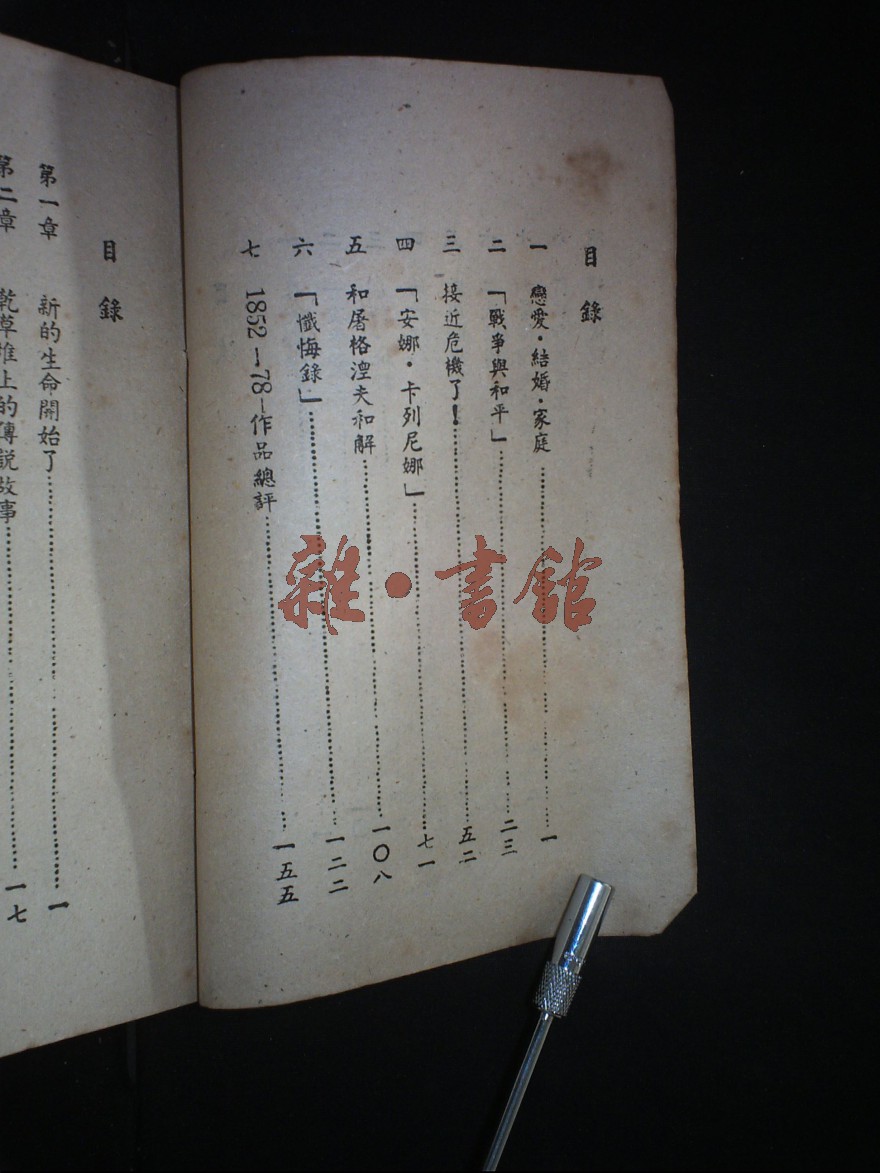 目錄
一 戀愛·結婚·家庭……一
二 「戰爭與和平」……二三
三 接近危機了！……五二
四 「安娜·卡列尼娜」……七一
五 和屠格涅夫和解……一〇八
六 「懺悔錄」……一二二
七 1852—78—作品總評……一五五
目錄
第一章 新的生命開始了……一
第二章 乾草堆上的傳說故事……一七
雜·書館